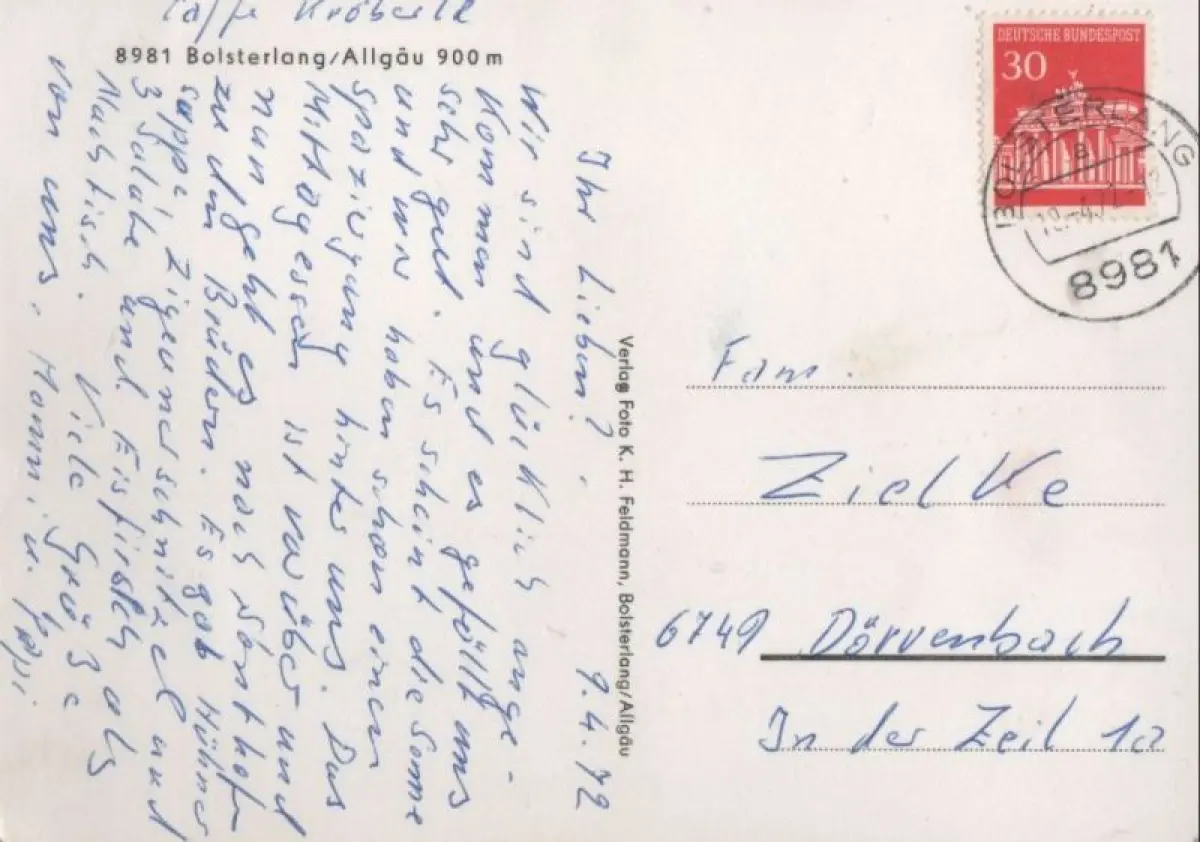 Caffe Kröberle
8981 Bolsterlang/Allgäu 900 m
9.4.72
Ihr Lieben!
Wir sind glücklich ange-
kommen und es gefällt uns
sehr gut. Es scheint die Sonne
und wir haben schon einen
Spaziergang hinter uns. Das
Mittagessen ist vorüber und
nun geht es nach
zu den Brüdern. Es gab Hühner
suppe, Zigeunerschnitzel und
3 Salate und Eisfirsich als
Nachtisch. Viele Grüße
von uns. Mammi u. Pappi
Verlag Foto K. H. Feldmann, Bolsterlang/Allgäu
DEUTSCHE BUNDESPOST
30
BOLSTERLANG
a
8981
Fam.
Zielke
6749 Dörrenbach
In der Zeil 12